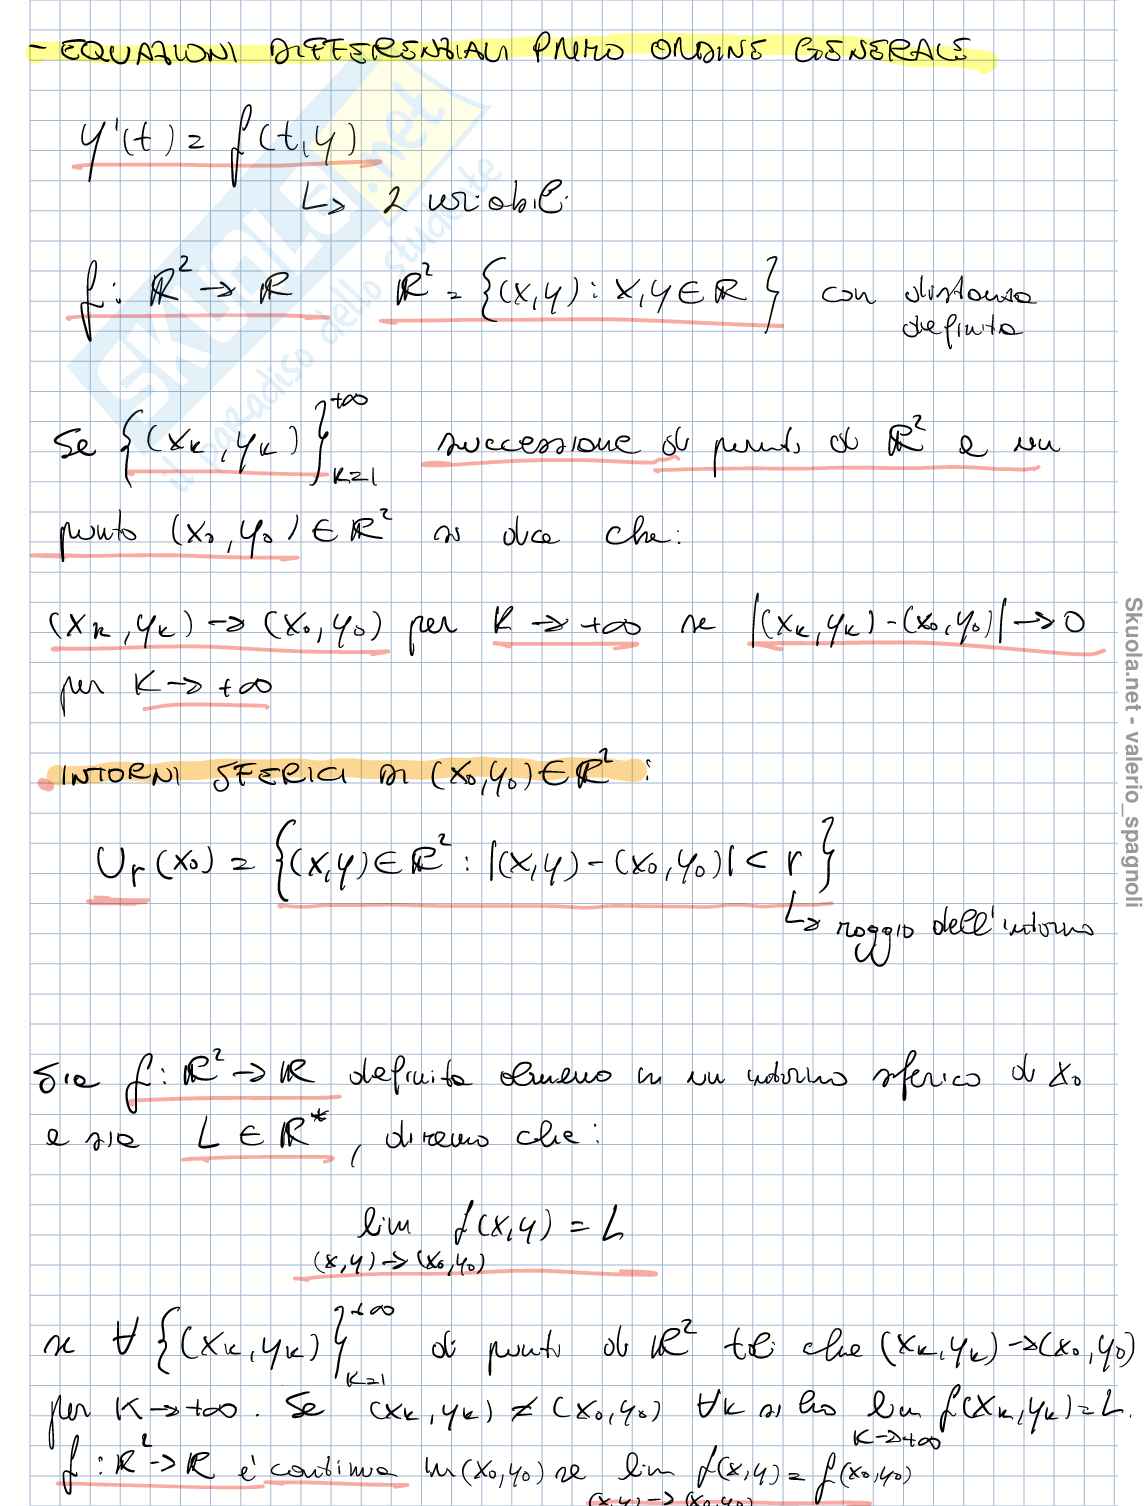 - EQUAZIONI DIFFERENZIALI PRIMO ORDINE GENERALE
y'(t) = f(t,y)
↳ 2 variabili
f: ℝ² → ℝ ℝ² = {(x,y) : x,y ∈ ℝ} con distanza
definita
Se {(x_k, y_k)}_{k=1}^{+∞} successione di punti di ℝ² e un
punto (x₀, y₀) ∈ ℝ² si dice che:
(x_k, y_k) → (x₀, y₀) per k → +∞ se |(x_k, y_k) - (x₀, y₀)| → 0
per k → +∞
INTORNI SFERICI DI (x₀, y₀) ∈ ℝ² :
U_r(x₀) = {(x,y) ∈ ℝ² : |(x,y) - (x₀, y₀)| < r}
↳ raggio dell'intorno
Sia f: ℝ² → ℝ definita almeno in un intorno sferico di x₀
e sia L ∈ ℝ*, diremo che:
lim f(x,y) = L
(x,y) → (x₀, y₀)
se ∀ {(x_k, y_k)}_{k=1}^{+∞} di punti di ℝ² t.c. che (x_k, y_k) → (x₀, y₀)
per k → +∞. Se (x_k, y_k) ≠ (x₀, y₀) ∀k si ha lim f(x_k, y_k) = L.
k → +∞
f: ℝ² → ℝ è continua in (x₀, y₀) se lim f(x,y) = f(x₀, y₀)
(x,y) → (x₀, y₀)
SKUOLA.net
il paradiso dello studente
Skuola.net - valerio_spagnoli